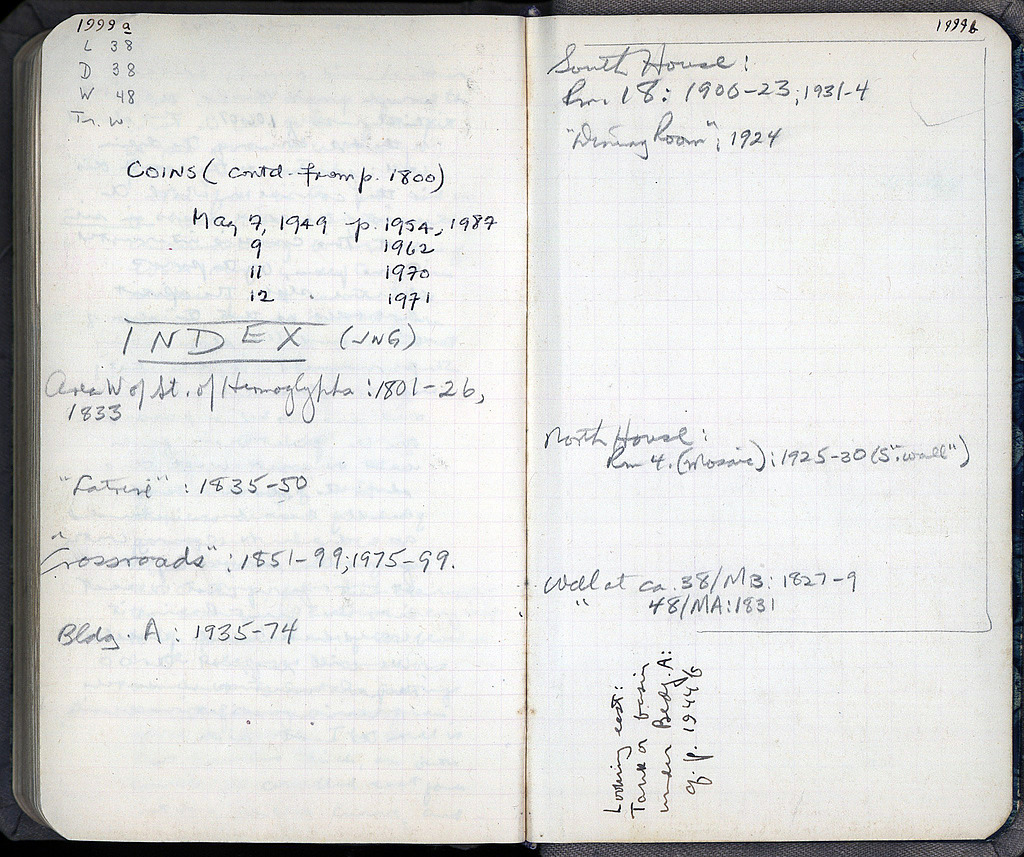 1999a
L 38
D 38
W 48
Tr. W
COINS (contd. from p. 1800)
May 7, 1949 p. 1954, 1987
9 1962
11 1970
12 1971
INDEX (JNG)
Area W of St. of Hermoglyphs : 1801-26,
1833
"Latrine" : 1835-50
"Crossroads" : 1851-99; 1975-99.
Bldg. A : 1935-74
1999b
South House :
Rm 18 : 1900-23, 1931-4
"Dining Room", 1924
North House :
Rm 4. (Mosaic) : 1925-30 (S. "wall")
Well at ca. 38/MB : 1827-9
" 48/MA : 1831
Looking east:
Tank or basin
under Bldg. A:
cf. p. 1944b